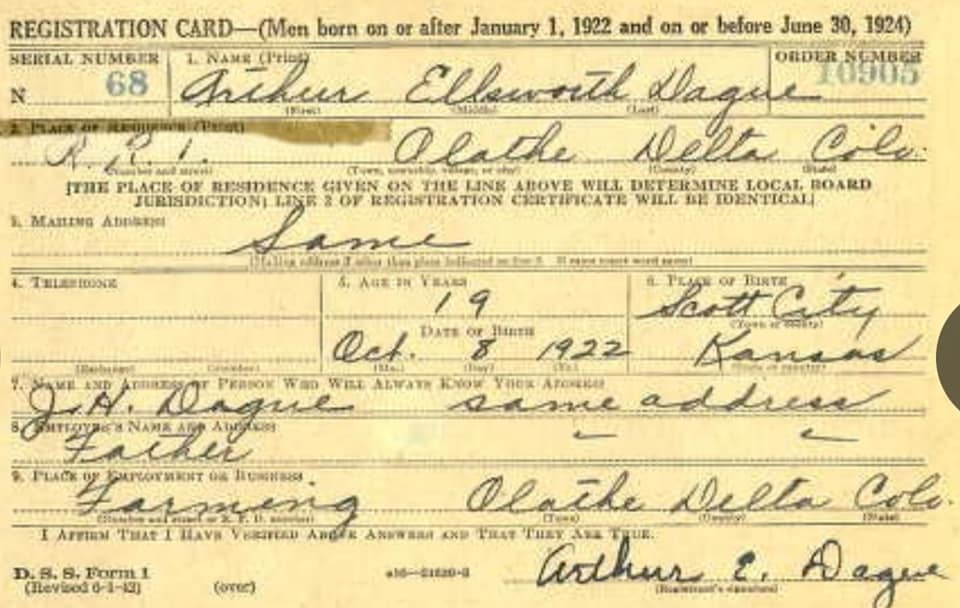 REGISTRATION CARD—(Men born on or after January 1, 1922 and on or before June 30, 1924)
SERIAL NUMBER 1. NAME (Print) ORDER NUMBER
N 68 Arthur Ellsworth Dague 10905
(First) (Middle) (Last)
2. PLACE OF RESIDENCE (Print)
R. R. 1. Olathe Delta Colo.
(Number and street) (Town, township, village, or city) (County) (State)
[THE PLACE OF RESIDENCE GIVEN ON THE LINE ABOVE WILL DETERMINE LOCAL BOARD
JURISDICTION; LINE 2 OF REGISTRATION CERTIFICATE WILL BE IDENTICAL]
3. MAILING ADDRESS
Same
(Mailing address if other than place indicated on line 2. If same insert word same)
4. TELEPHONE 5. AGE IN YEARS 6. PLACE OF BIRTH
19 Scott City
(Town or county)
DATE OF BIRTH
Oct. 8 1922 Kansas
(Exchange) (Number) (Mo.) (Day) (Yr.) (State or country)
7. NAME AND ADDRESS OF PERSON WHO WILL ALWAYS KNOW YOUR ADDRESS
J. H. Dague same address
8. EMPLOYER'S NAME AND ADDRESS
Father
9. PLACE OF EMPLOYMENT OR BUSINESS
Farming Olathe Delta Colo.
(Number and street or R. F. D. number) (Town) (County) (State)
I AFFIRM THAT I HAVE VERIFIED ABOVE ANSWERS AND THAT THEY ARE TRUE.
D. S. S. Form 1 Arthur E. Dague
(Revised 6-1-42) (over) (Registrant's signature)